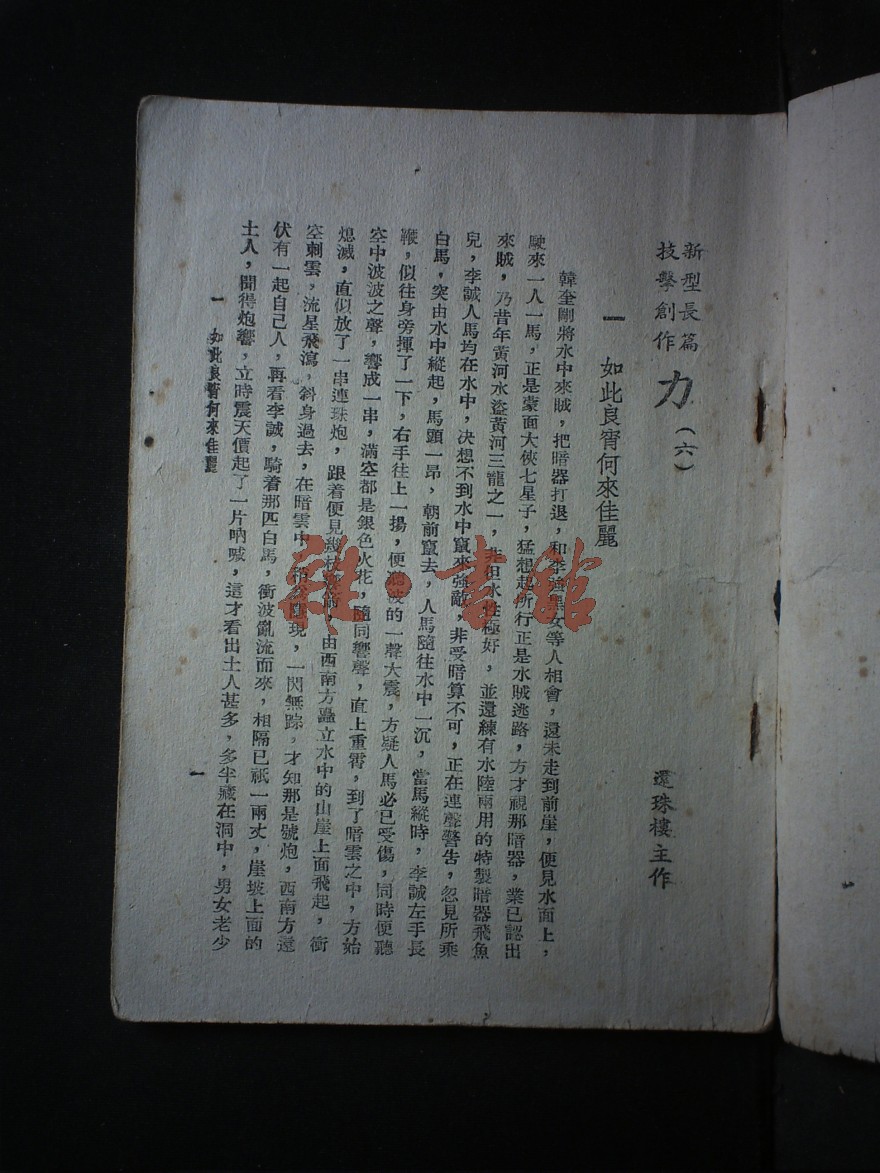 新型長篇
技擊創作
力
（六）
還珠樓主作
一　如此良宵何來佳麗
韓奎剛將水中來賊，把暗器打退，和李強黑女等人相會，還未走到前崖，便見水面上，
駛來一人一馬，正是蒙面大俠七星子，猛想起所行正是水賊逃路，方才視那暗器，業已認出
來賊，乃昔年黃河水盜黃河三龍之一，非但水性極好，並還練有水陸兩用的特製暗器飛魚
兒，李誠人馬均在水中，決想不到水中竄來強敵，非受暗算不可，正在連聲警告，忽見所乘
白馬，突由水中縱起，馬頭一昂，朝前竄去，人馬隨往水中一沉，當馬縱時，李誠左手長
鞭，似往身旁揮了一下，右手往上一揚，便聽波的一聲大震，方疑人馬必已受傷，同時便聽
空中波波之聲，響成一串，滿空都是銀色火花，隨同響聲，直上重霄，到了暗雲之中，方始
熄滅，直似放了一串連珠炮，跟着便見幾枝，由西南方矗立水中的山崖上面飛起，衝
空刺雲，流星飛瀉，斜身過去，在暗雲中，現，一閃無踪，才知那是號炮，西南方還
伏有一起自己人，再看李誠，騎着那匹白馬，衝波亂流而來，相隔已祇一兩丈，崖坡上面的
土人，聞得炮響，立時震天價起了一片吶喊，這才看出土人甚多，多半藏在洞中，男女老少
一　如此良宵何來佳麗
一
雜·書館